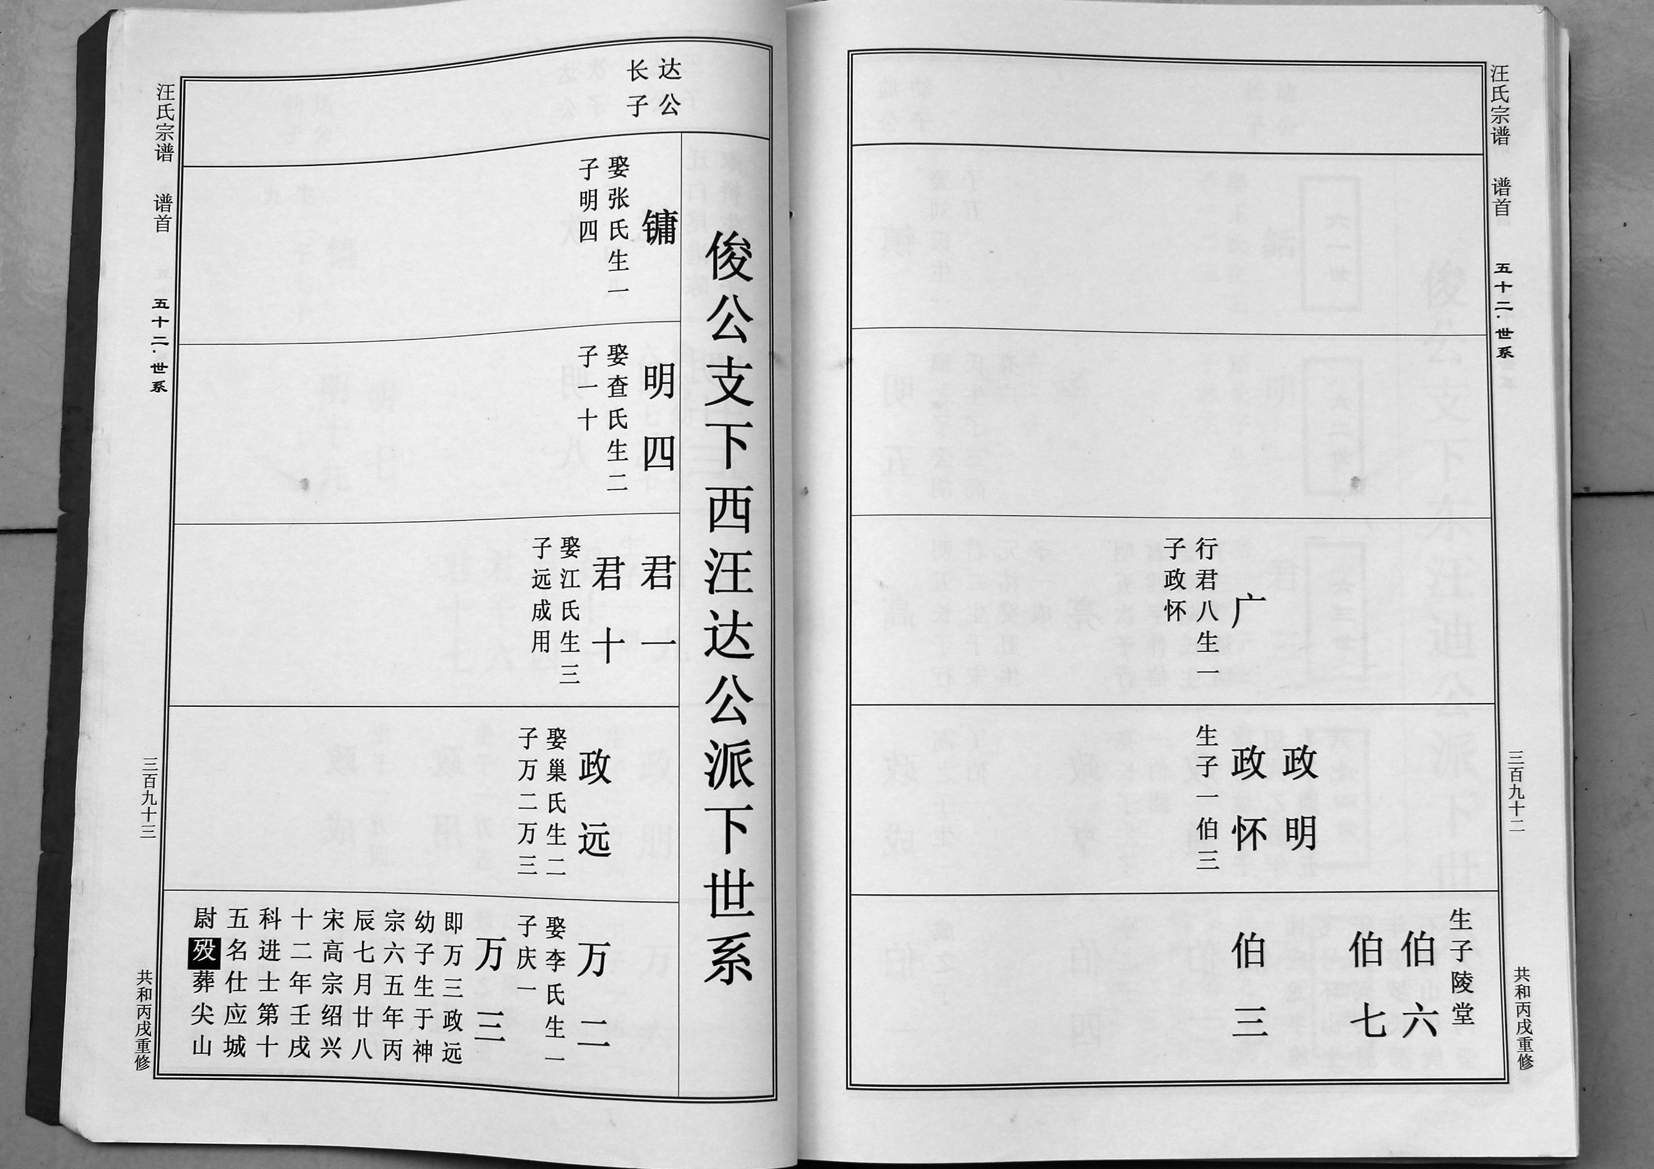 汪氏宗谱 谱首 五十二·世系 三百九十二 共和丙戌重修
广
行君八生一
子政怀
政明
政怀
生子一伯三
生子陵堂
伯六
伯七
伯三
俊公支下西汪达公派下世系
达公
长子
镛
娶张氏生一
子明四
明四
娶查氏生二
子一十
君一
君十
娶江氏生三
子远成用
政远
娶巢氏生二
子万二万三
万二
娶李氏生一
子庆一
万三
即万三政远
幼子生于神
宗六五年丙
辰七月廿八
宋高宗绍兴
十二年壬戌
科进士第十
五名仕应城
尉殁葬尖山
汪氏宗谱 谱首 五十二·世系 三百九十三 共和丙戌重修